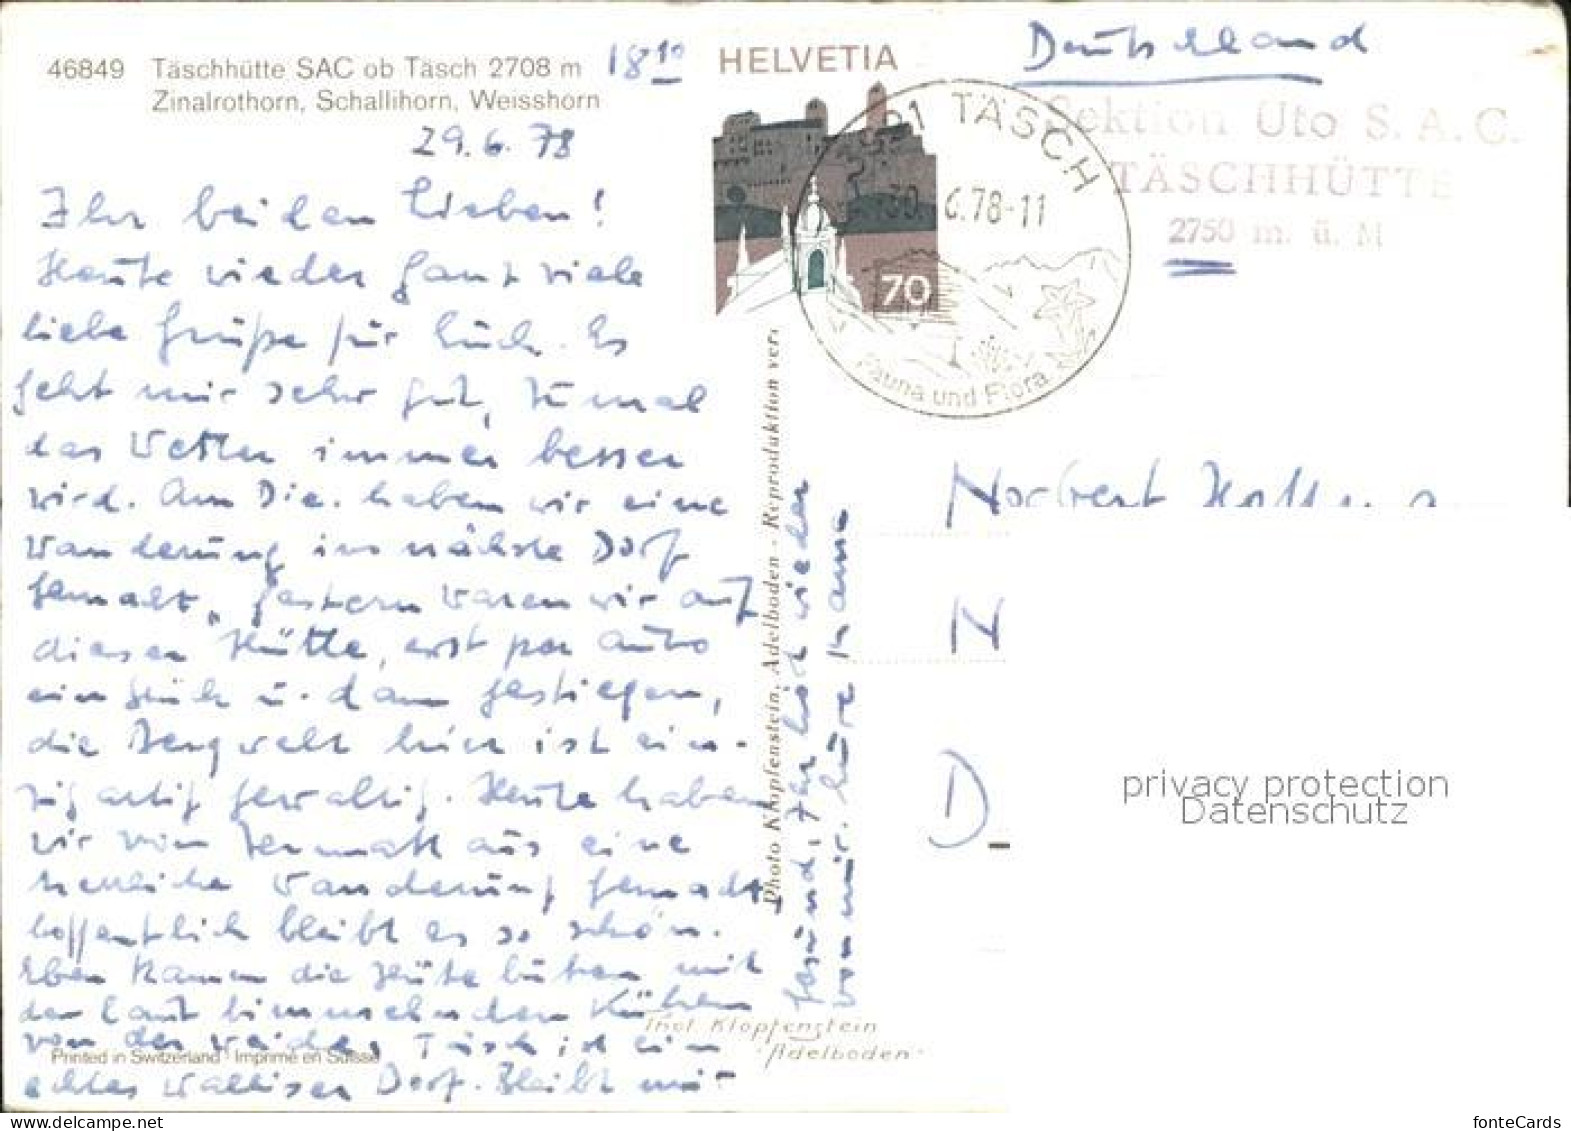 46849 Täschhütte SAC ob Täsch 2708 m
Zinalrothorn, Schallihorn, Weisshorn
18¹⁰
29.6.78
Ihr beiden Lieben!
Heute wieder ganz viele
liebe Grüße für Euch. Es
geht mir sehr gut, zumal
das Wetter immer besser
wird. Am Die. haben wir eine
Wanderung ins nächste Dorf
gemacht, gestern waren wir auf
dieser Hütte, erst per Auto
ein Stück u. dann gestiegen,
die Bergwelt hier ist ein-
zigartig gewaltig. Heute haben
wir von Zermatt aus eine
herrliche Wanderung gemacht
hoffentlich bleibt es so schön.
Eben kamen die Hütebuben mit
den laut bimmelnden Kühen
von der Weide, Täsch ist ein
echtes Walliser Dorf. Bleibt mir
gesund, Ihr hört wieder
von mir.
Printed in Switzerland · Imprimé en Suisse
Photo Klopfenstein, Adelboden - Reproduktion ver.
Thol. Klopfenstein
Adelboden
HELVETIA
70
TÄSCH
30. 6.78-11
Fauna und Flora
Deutschland
Sektion Uto S.A.C.
TÄSCHHÜTTE
2750 m. ü. M
Norbert
N
D
privacy protection
Datenschutz
www.delcampe.net
fonteCards